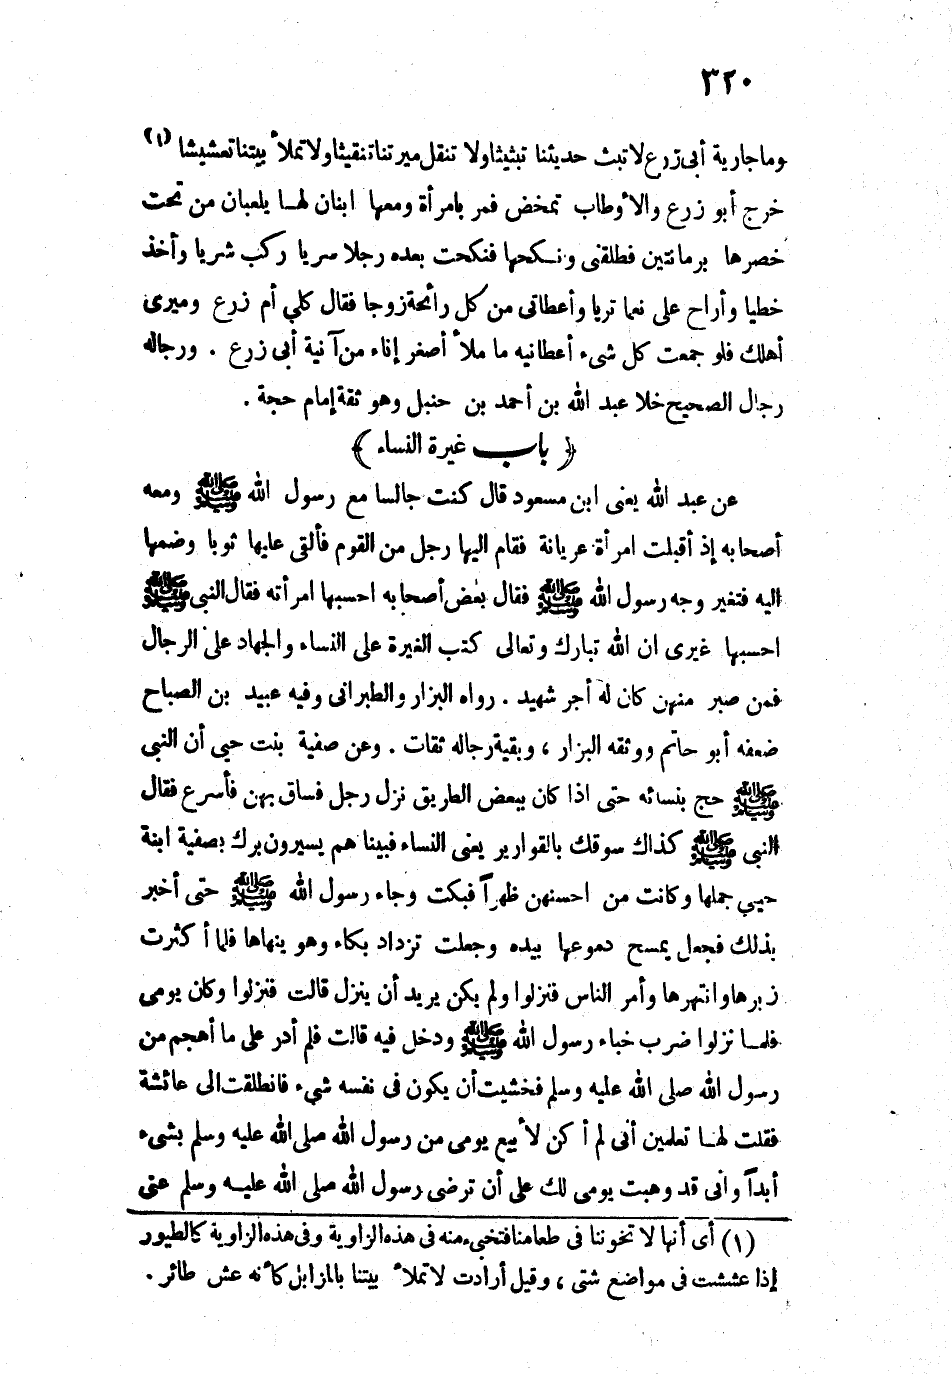 ٣٢٠
وما جارية أبى زرع لا تبث حديثنا تبثيثا ولا تنقل ميرتنا تنقيثا ولا تملأ بيتنا تعشيشا (١)
خرج أبو زرع والأوطاب تمخض فمر بامرأة ومعها ابنان لها يلعبان من تحت
خصرها برمانتين فطلقنى ونكحها فنكحت بعده رجلا سريا ركب شريا وأخذ
خطيا وأراح على نعما ثريا وأعطانى من كل رائحة زوجا فقال كلي أم زرع وميرى
أهلك فلو جمعت كل شىء أعطانيه ما ملأ أصغر إناء من آنية أبى زرع . ورجاله
رجال الصحيح خلا عبد الله بن أحمد بن حنبل وهو ثقة إمام حجة .
﴿ باب غيرة النساء ﴾
عن عبد الله يعنى ابن مسعود قال كنت جالسا مع رسول الله ﷺ ومعه
أصحابه إذ أقبلت امرأة عريانة فقام اليها رجل من القوم فألقى عليها ثوبا وضمها
اليه فتغير وجه رسول الله ﷺ فقال بعض أصحابه احسبها امرأته فقال النبى ﷺ
احسبها غيرى ان الله تبارك وتعالى كتب الغيرة على النساء والجهاد على الرجال
فمن صبر منهن كان له أجر شهيد . رواه البزار والطبرانى وفيه عبيد بن الصباح
ضعفه أبو حاتم ووثقه البزار ، وبقية رجاله ثقات . وعن صفية بنت حيى أن النبى
ﷺ حج بنسائه حتى اذا كان ببعض الطريق نزل رجل فساق بهن فأسرع فقال
النبى ﷺ كذاك سوقك بالقوارير يعنى النساء فبينا هم يسيرون برك بصفية ابنة
حيي جملها وكانت من احسنهن ظهراً فبكت وجاء رسول الله ﷺ حتى أخبر
بذلك فجعل يمسح دموعها بيده وجعلت تزداد بكاء وهو ينهاها فلما أكثرت
زبرها وانتهرها وأمر الناس فنزلوا ولم يكن يريد أن ينزل قالت فنزلوا وكان يومى
فلما نزلوا ضرب خباء رسول الله ﷺ ودخل فيه قالت فلم أدر على ما أهجم من
رسول الله صلى الله عليه وسلم فخشيت أن يكون فى نفسه شىء فانطلقت الى عائشة
فقلت لها تعلمين أنى لم أكن لأبيع يومى من رسول الله صلى الله عليه وسلم بشىء
أبداً وانى قد وهبت يومى لك على أن ترضى رسول الله صلى الله عليه وسلم عنى
(١) أى أنها لا تخوننا فى طعامنا فتخبىء منه فى هذه الزاوية وفى هذه الزاوية كالطيور
إذا عششت فى مواضع شتى ، وقيل أرادت لا تملأ بيتنا بالمزابل كأنه عش طائر .